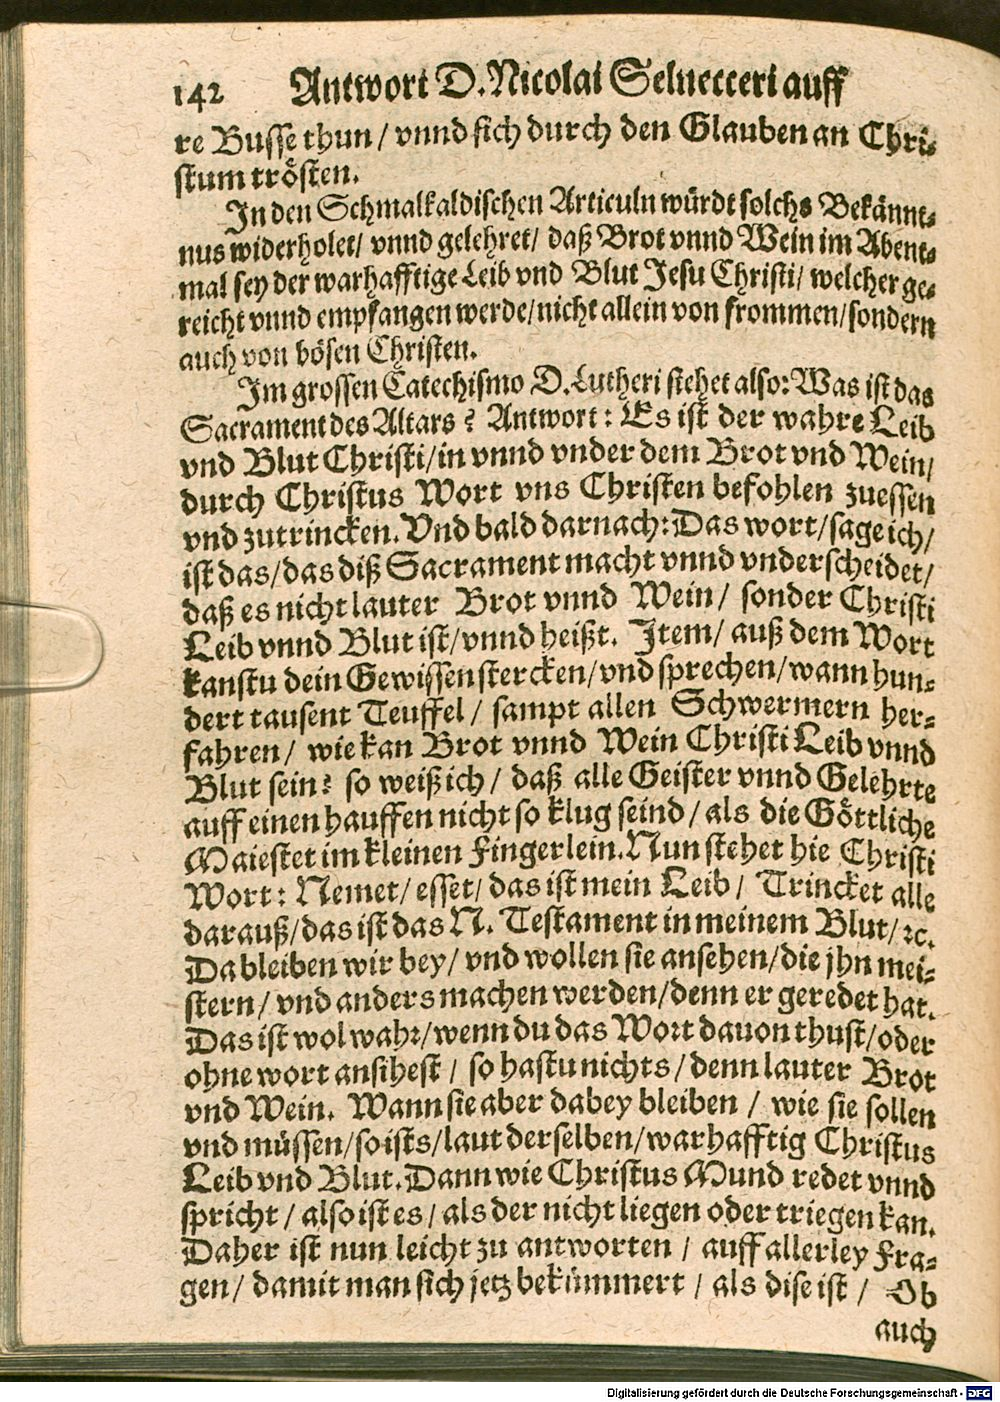 142 Antwort D. Nicolai Selnecceri auff
re Busse thun / vnnd sich durch den Glauben an Chri-
stum trösten.
In den Schmalkaldischen Articuln würdt solchs Bekännt-
nus widerholet / vnnd gelehret / daß Brot vnnd Wein im Abent-
mal sey der warhafftige Leib vnd Blut Jesu Christi / welcher ge-
reicht vnnd empfangen werde / nicht allein von frommen / sondern
auch von bösen Christen.
Im grossen Catechismo D. Lutheri stehet also: Was ist das
Sacrament des Altars? Antwort: Es ist der wahre Leib
vnd Blut Christi / in vnnd vnder dem Brot vnd Wein /
durch Christus Wort vns Christen befohlen zuessen
vnd zutrincken. Vnd bald darnach: Das wort / sage ich /
ist das / das diß Sacrament macht vnnd vnderscheidet /
daß es nicht lauter Brot vnnd Wein / sonder Christi
Leib vnnd Blut ist / vnnd heißt. Item / auß dem Wort
kanstu dein Gewissen stercken / vnd sprechen / wann hun-
dert tausent Teuffel / sampt allen Schwermern her-
fahren / wie kan Brot vnnd Wein Christi Leib vnnd
Blut sein? so weiß ich / daß alle Geister vnnd Gelehrte
auff einen hauffen nicht so klug seind / als die Göttliche
Maiestet im kleinen Fingerlein. Nun stehet hie Christi
Wort: Nemet / esset / das ist mein Leib / Trincket alle
darauß / das ist das N. Testament in meinem Blut / ꝛc.
Da bleiben wir bey / vnd wollen sie ansehen / die jhn mei-
stern / vnd anders machen werden / denn er geredet hat.
Das ist wol wahr / wenn du das Wort dauon thust / oder
ohne wort ansihest / so hastu nichts / denn lauter Brot
vnd Wein. Wann sie aber dabey bleiben / wie sie sollen
vnd müssen / so ists / laut derselben / warhafftig Christus
Leib vnd Blut. Dann wie Christus Mund redet vnnd
spricht / also ist es / als der nicht liegen oder triegen kan.
Daher ist nun leicht zu antworten / auff allerley Fra-
gen / damit man sich jetz bekümmert / als dise ist / Ob
auch
Digitalisierung gefördert durch die Deutsche Forschungsgemeinschaft - DFG